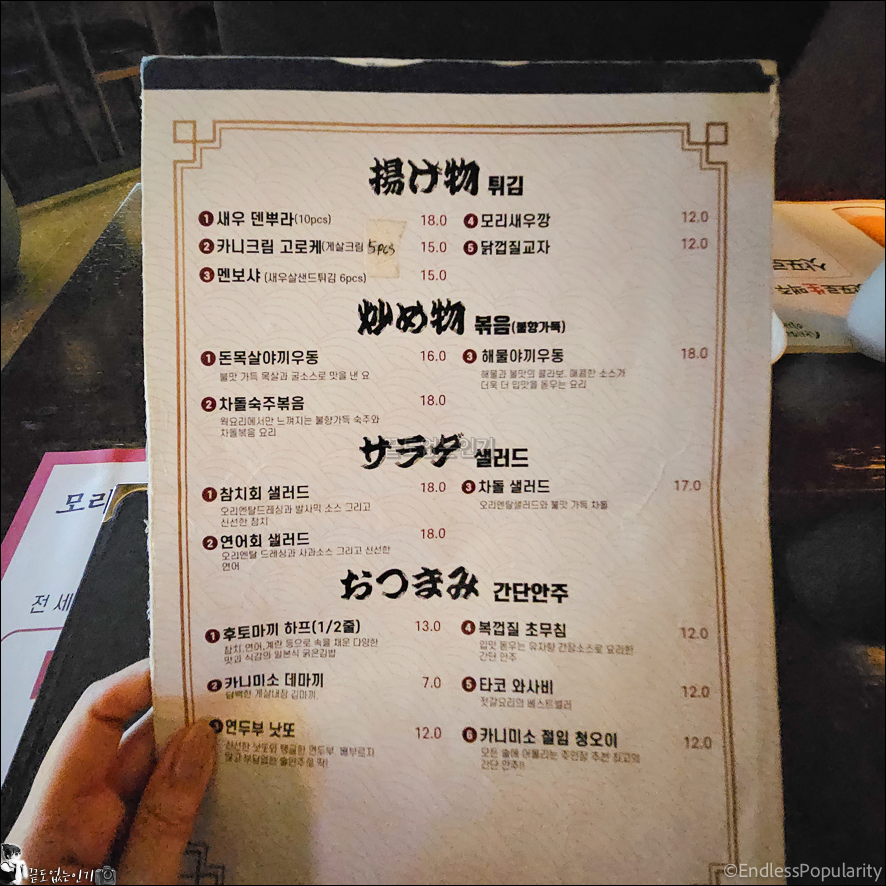 揚げ物 튀김
❶ 새우 덴뿌라(10pcs) 18.0
❷ 카니크림 고로케(게살크림 5pcs 15.0
❸ 멘보샤 (새우살샌드튀김 6pcs) 15.0
❹ 모리새우깡 12.0
❺ 닭껍질교자 12.0
炒め物 볶음(불향가득)
❶ 돈목살야끼우동 16.0
불맛 가득 목살과 굴소스로 맛을 낸 요
❷ 차돌숙주볶음 18.0
웍요리에서만 느껴지는 불향가득 숙주와
차돌볶음 요리
❸ 해물야끼우동 18.0
해물과 불맛의 콜라보. 매콤한 소스가
더욱 더 입맛을 돋우는 요리
サラダ 샐러드
❶ 참치회 샐러드 18.0
오리엔탈드레싱과 발사믹 소스 그리고
신선한 참치
❷ 연어회 샐러드 18.0
오리엔탈 드레싱과 사과소스 그리고 신선한
연어
❸ 차돌 샐러드 17.0
오리엔탈샐러드와 불맛 가득 차돌
おつまみ 간단안주
❶ 후토마끼 하프(1/2줄) 13.0
참치,연어,계란 등으로 속을 채운 다양한
맛과 식감의 일본식 굵은김밥
❷ 카니미소 데마끼 7.0
담백한 게살내장 김마끼
연두부 낫또 12.0
신선한 낫또와 탱글한 연두부. 배부르지
않고 부담없는 술안주로 딱!
❹ 복껍질 초무침 12.0
입맛 돋우는 유자향 간장소스로 요리한
간단 안주
❺ 타코 와사비 12.0
젓갈요리의 베스트셀러
❻ 카니미소 절임 청오이 12.0
모든 술에 어울리는 주인장 추천 최고의
간단 안주!!
모리
전 세
끝도없는인기
끝도없는인기
©EndlessPopularity